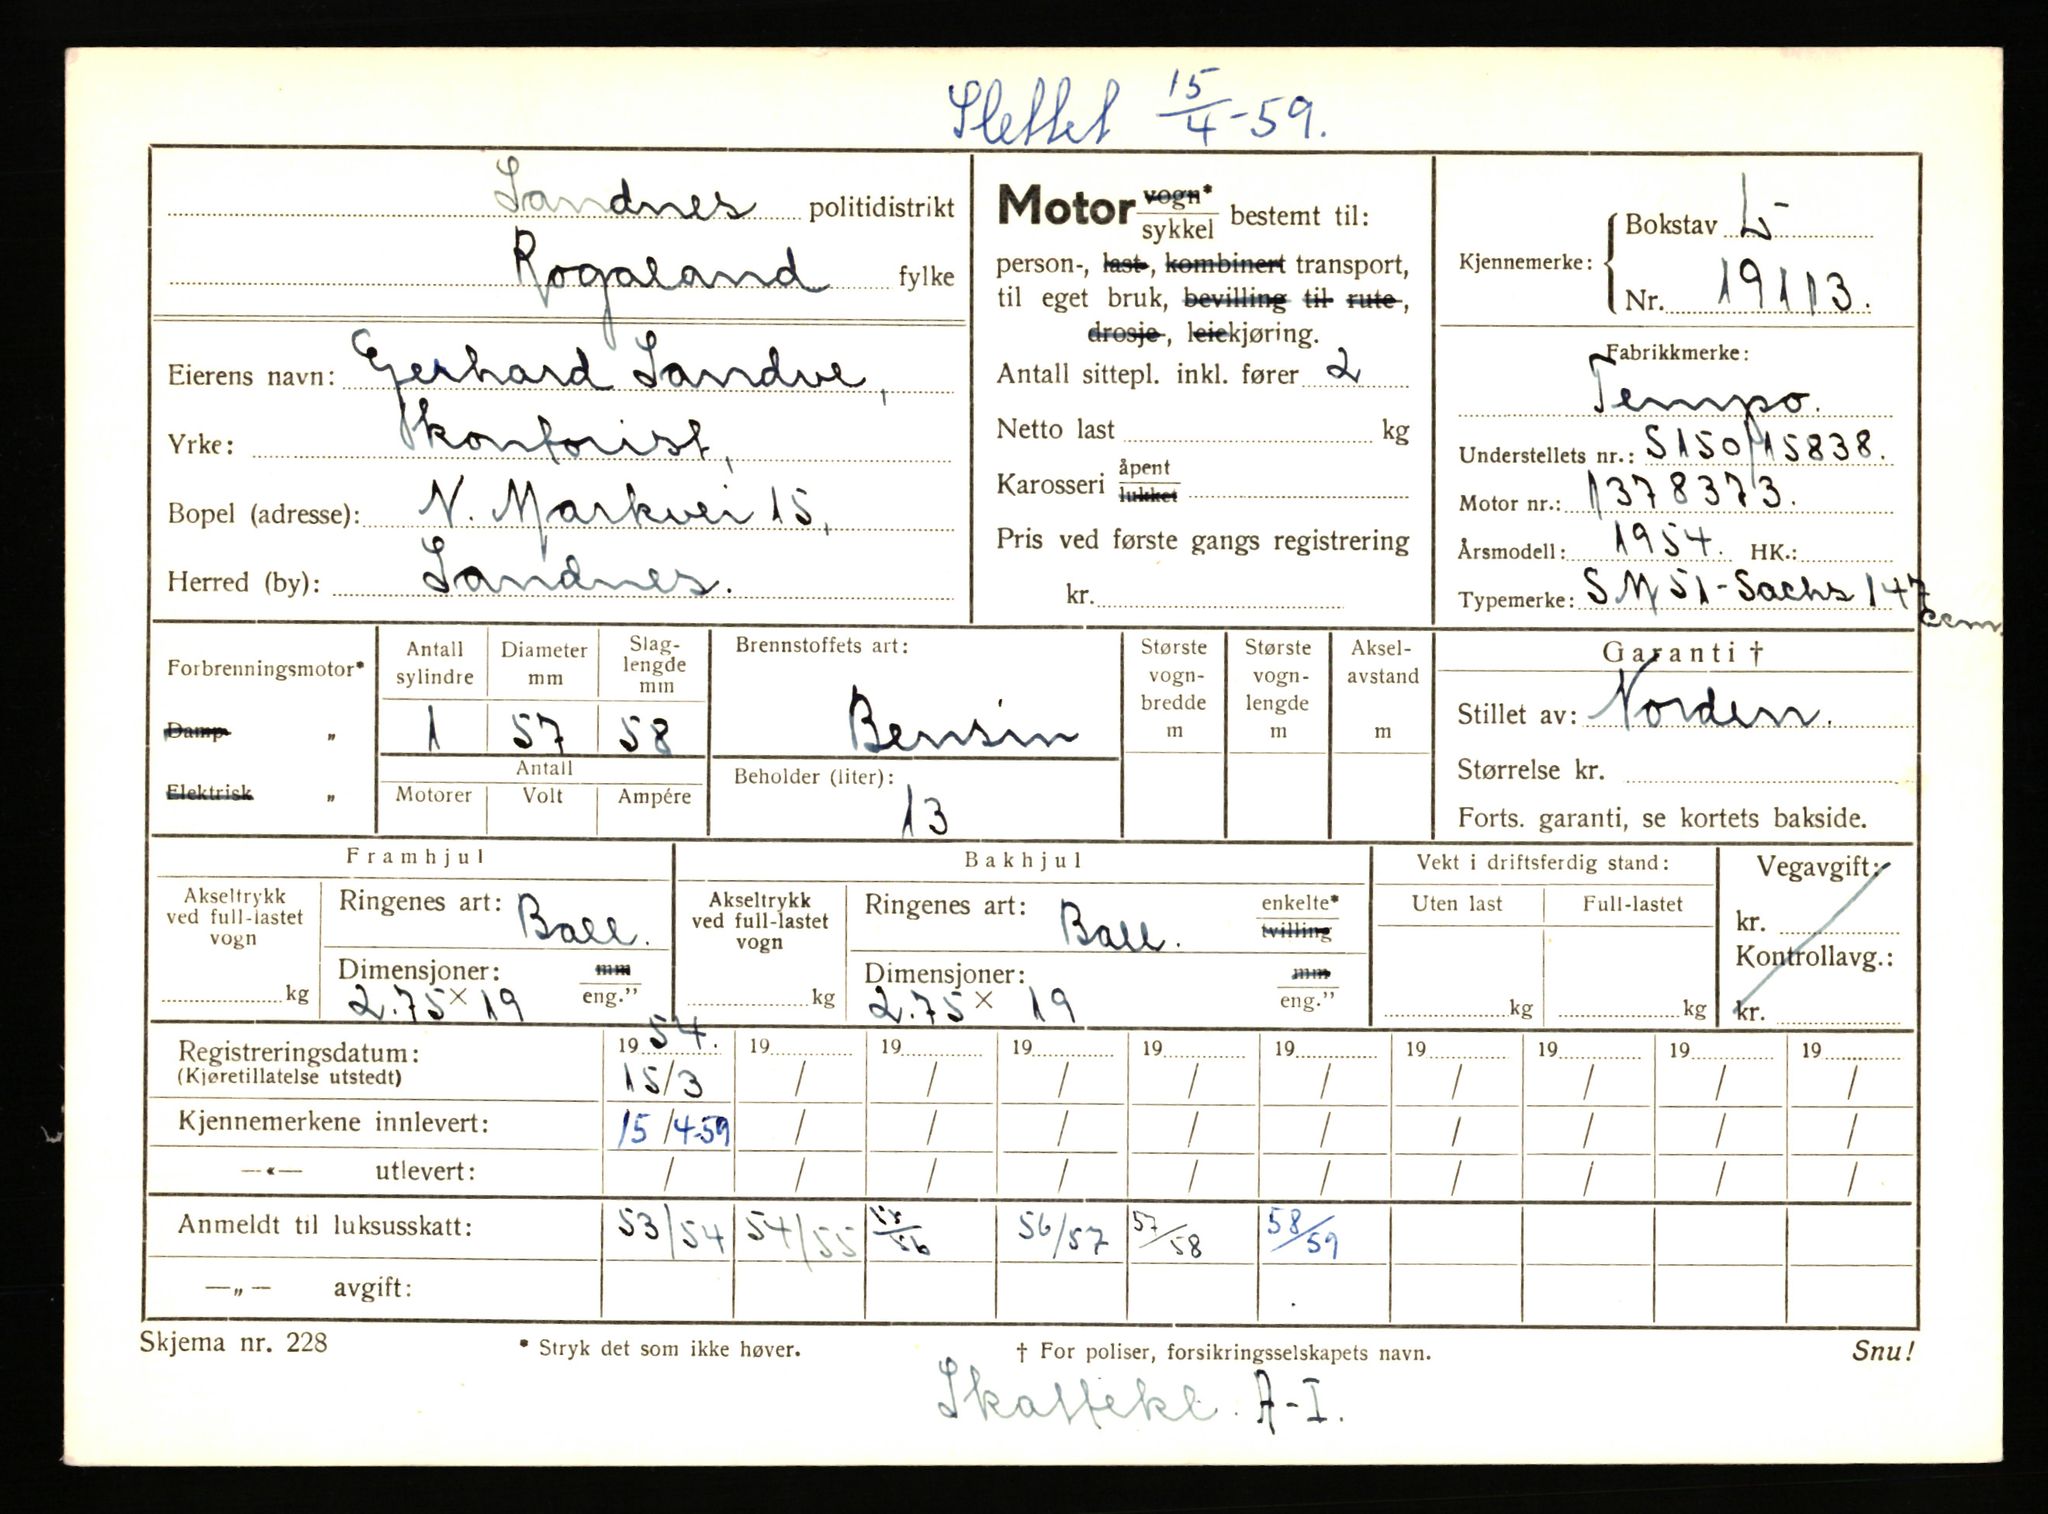 Slettet 15/4-59.
Sandnes politidistrikt
Rogaland fylke
Eierens navn: Gerhard Sandve,
Yrke: Kontorist,
Bopel (adresse): N. Markvei 15,
Herred (by): Sandnes.
Motor vogn*/sykkel bestemt til:
person-, last-, kombinert transport,
til eget bruk, bevilling til rute-,
drosje-, leiekjøring.
Antall sittepl. inkl. fører 2
Netto last kg
Karosseri åpent/lukket
Pris ved første gangs registrering
kr.
Kjennemerke: Bokstav L
Nr. 19113.
Fabrikkmerke:
Tempo.
Understellets nr.: S150/15838.
Motor nr.: 1378373.
Årsmodell: 1954. HK.:
Typemerke: SM 51-Sachs 147 ccm.
Forbrenningsmotor*
Damp „
Elektrisk „
Antall sylindre
1
Diameter mm
57
Slaglengde mm
58
Antall
Motorer Volt Ampére
Brennstoffets art:
Bensin
Beholder (liter):
13
Største vogn-bredde m
Største vogn-lengde m
Aksel-avstand m
Garanti †
Stillet av: Norden.
Størrelse kr.
Forts. garanti, se kortets bakside.
Framhjul
Akseltrykk ved full-lastet vogn
kg
Ringenes art: Ball.
Dimensjoner: mm/eng."
2.75 x 19
Bakhjul
Akseltrykk ved full-lastet vogn
kg
Ringenes art: Ball. enkelte*/tvilling
Dimensjoner: mm/eng."
2.75 x 19
Vekt i driftsferdig stand:
Uten last Full-lastet
kg kg
Vegavgift:
kr.
Kontrollavg.:
kr.
Registreringsdatum: 1954. 19 19 19 19 19 19 19 19 19
(Kjøretillatelse utstedt) 15/3 / / / / / / / / /
Kjennemerkene innlevert: 15/4-59 / / / / / / / / /
—«— utlevert: / / / / / / / / / /
Anmeldt til luksusskatt: 53/54 54/55 55/56 56/57 57/58 58/59
—„— avgift:
Skjema nr. 228 * Stryk det som ikke høver. † For poliser, forsikringsselskapets navn. Snu!
Skattekl. A-I.